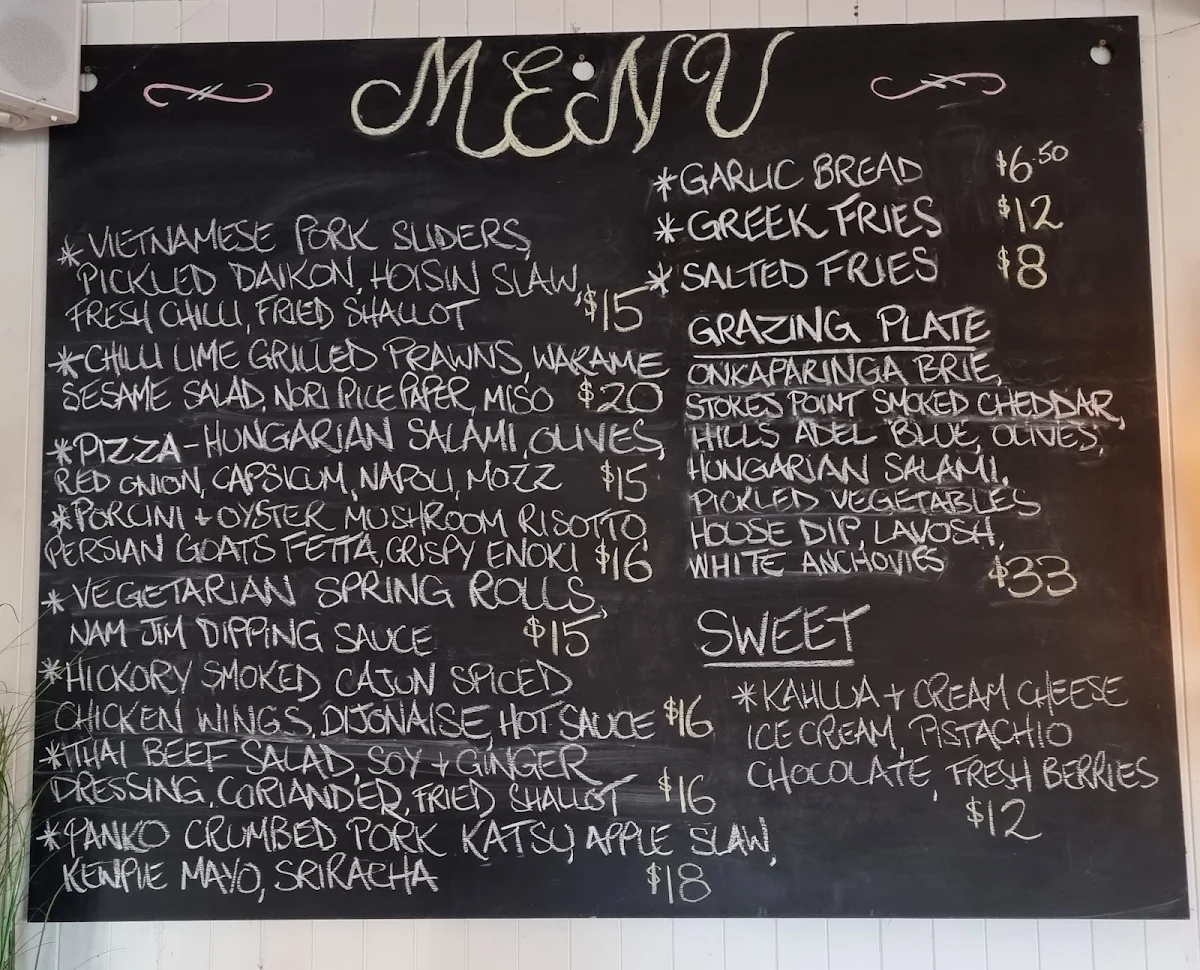 MENU
*VIETNAMESE PORK SLIDERS,
PICKLED DAIKON, HOISIN SLAW,
FRESH CHILLI, FRIED SHALLOT $15
*CHILLI LIME GRILLED PRAWNS, WAKAME
SESAME SALAD, NORI RICE PAPER, MISO $20
*PIZZA - HUNGARIAN SALAMI, OLIVES,
RED ONION, CAPSICUM, NAPOLI, MOZZ $15
*PORCINI + OYSTER MUSHROOM RISOTTO,
PERSIAN GOATS FETTA, CRISPY ENOKI $16
*VEGETARIAN SPRING ROLLS,
NAM JIM DIPPING SAUCE $15
*HICKORY SMOKED CAJUN SPICED
CHICKEN WINGS, DIJONAISE, HOT SAUCE $16
*THAI BEEF SALAD, SOY + GINGER
DRESSING, CORIANDER, FRIED SHALLOT $16
*PANKO CRUMBED PORK KATSU, APPLE SLAW,
KEWPIE MAYO, SRIRACHA $18
*GARLIC BREAD $6.50
*GREEK FRIES $12
*SALTED FRIES $8
GRAZING PLATE
ONKAPARINGA BRIE,
STOKES POINT SMOKED CHEDDAR,
HILLS ADEL BLUE, OLIVES,
HUNGARIAN SALAMI,
PICKLED VEGETABLES
HOUSE DIP, LAVOSH,
WHITE ANCHOVIES $33
SWEET
*KAHLUA + CREAM CHEESE
ICE CREAM, PISTACHIO
CHOCOLATE, FRESH BERRIES
$12